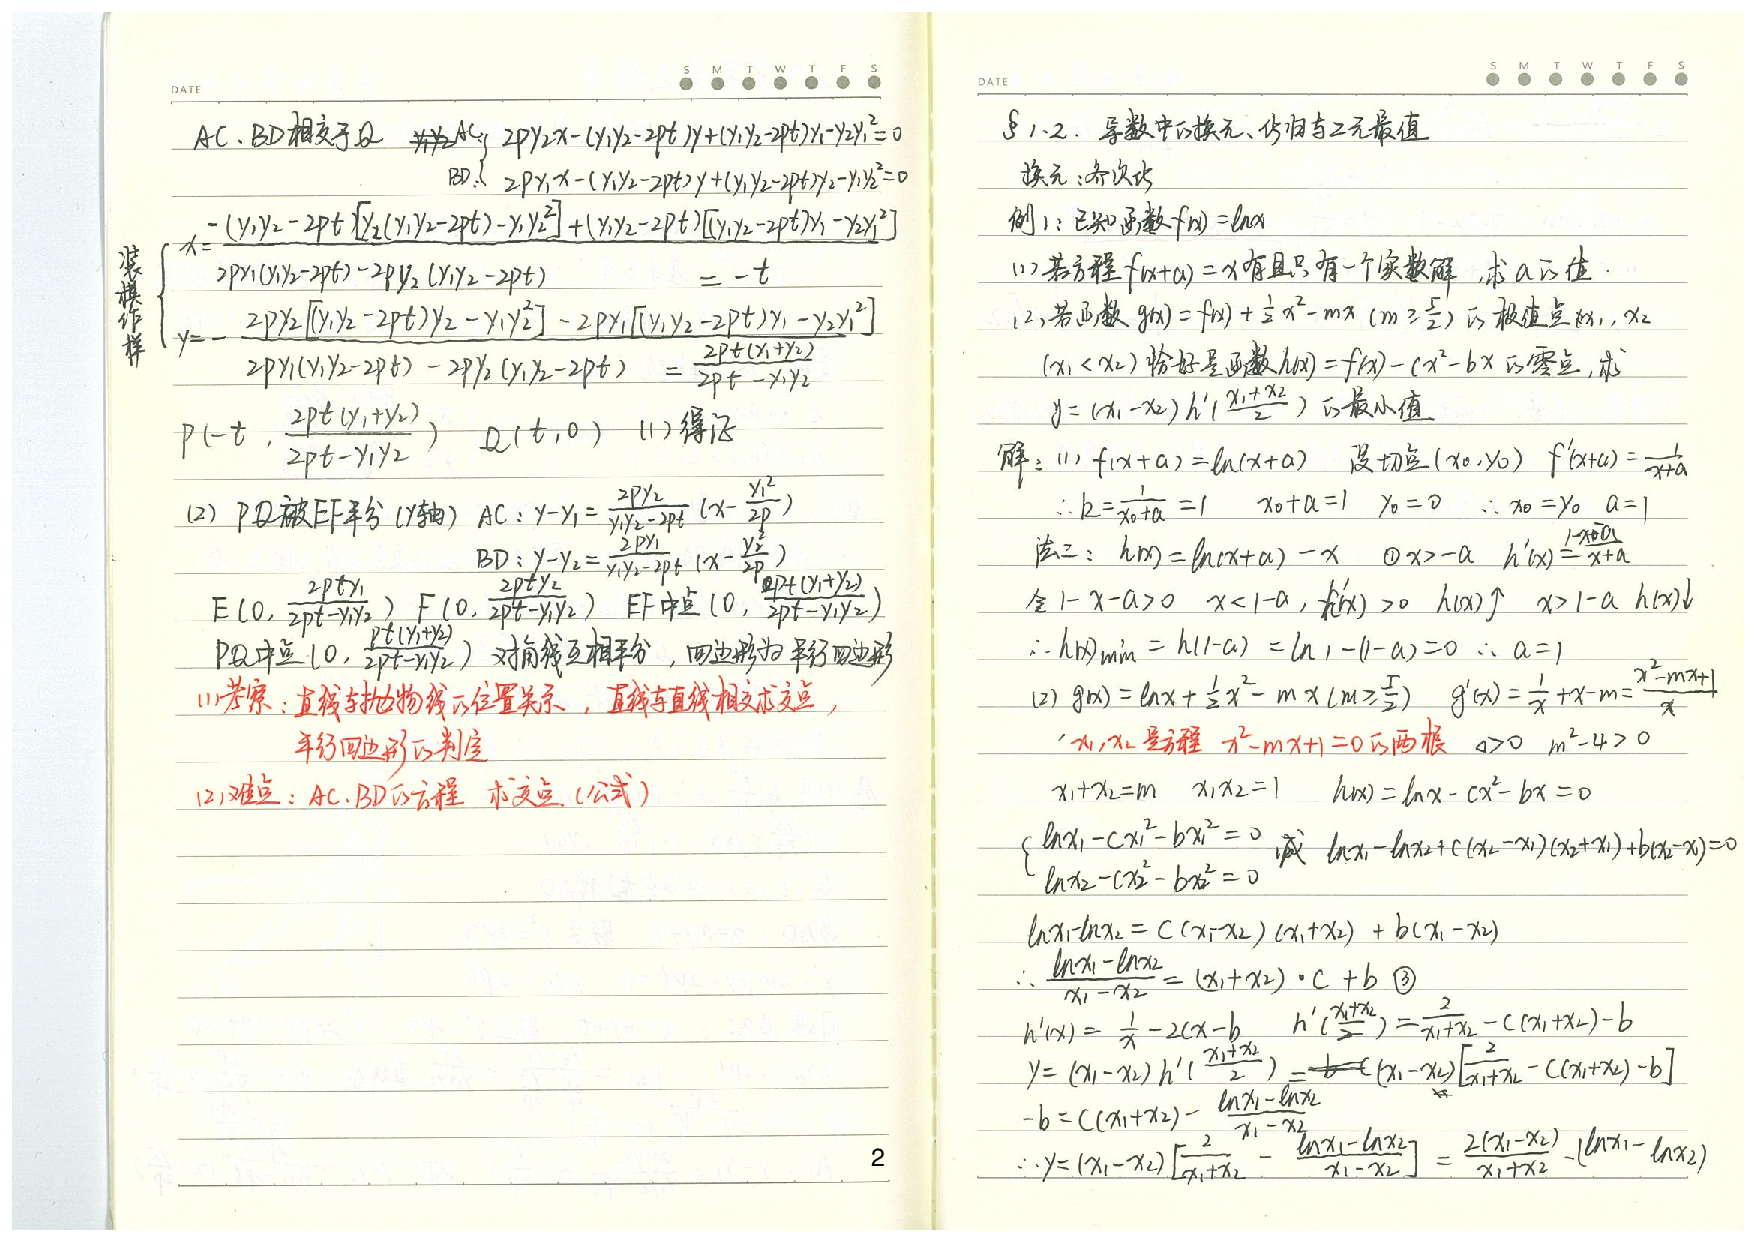 DATE
S M T W T F S
AC、BD相交于Q AC: 2py₂x-(y₁y₂-2pt)y+(y₁y₂-2pt)y₁-y₂y₁²=0
BD: 2py₁x-(y₁y₂-2pt)y+(y₁y₂-2pt)y₂-y₁y₂²=0
装模作样
x= -(y₁y₂-2pt)[y₂(y₁y₂-2pt)-y₁y₂²]+(y₁y₂-2pt)[(y₁y₂-2pt)y₁-y₂y₁²] / 2py₁(y₁y₂-2pt)-2py₂(y₁y₂-2pt) = -t
y=- 2py₂[(y₁y₂-2pt)y₂-y₁y₂²]-2py₁[(y₁y₂-2pt)y₁-y₂y₁²] / 2py₁(y₁y₂-2pt)-2py₂(y₁y₂-2pt) = 2pt(y₁+y₂)/2pt-y₁y₂
P(-t, 2pt(y₁+y₂)/2pt-y₁y₂) Q(t,0) (1)得证
(2) PQ被EF平分(y轴) AC: y-y₁= 2py₂/y₁y₂-2pt (x- y₁²/2p)
BD: y-y₂= 2py₁/y₁y₂-2pt (x- y₂²/2p)
E(0, 2pty₁/2pt-y₁y₂) F(0, 2pty₂/2pt-y₁y₂) EF中点(0, 2pt(y₁+y₂)/2pt-y₁y₂)
PQ中点(0, pt(y₁+y₂)/2pt-y₁y₂) 对角线互相平分,四边形为平行四边形
(1)考察:直线与抛物线的位置关系,直线与直线相交求交点,
平行四边形的判定
(2)难点:AC、BD的方程 求交点(公式)
2
DATE
S M T W T F S
§1.2. 导数中的换元、化归与二元最值
换元:齐次化
例1:已知函数f(x)=lnx
(1)若方程f(x+a)=x有且只有一个实数解,求a的值.
(2)若函数g(x)=f(x)+½x²-mx(m≥5/2)的极值点x₁,x₂
(x₁<x₂)恰好是函数h(x)=f(x)-cx²-bx的零点,求
y=(x₁-x₂)h'(x₁+x₂/2)的最小值
解:(1) f(x+a)=ln(x+a) 设切点(x₀,y₀) f'(x+a)= 1/x+a
∴k= 1/x₀+a =1 x₀+a=1 y₀=0 ∴x₀=y₀ a=1
法二: h(x)=ln(x+a)-x ①x>-a h'(x)= 1-x-a/x+a
令1-x-a>0 x<1-a, h'(x)>0 h(x)↑ x>1-a h(x)↓
∴h(x)min=h(1-a)=ln1-(1-a)=0 ∴a=1
(2) g(x)=lnx+½x²-mx(m≥5/2) g'(x)= 1/x +x-m= x²-mx+1/x
x₁,x₂是方程 x²-mx+1=0的两根 Δ>0 m²-4>0
x₁+x₂=m x₁x₂=1 h(x)=lnx-cx²-bx=0
{ lnx₁-cx₁²-bx₁²=0 减 lnx₁-lnx₂+c(x₂-x₁)(x₂+x₁)+b(x₂-x₁)=0
lnx₂-cx₂²-bx₂²=0
lnx₁-lnx₂=c(x₁-x₂)(x₁+x₂)+b(x₁-x₂)
∴ lnx₁-lnx₂/x₁-x₂ =(x₁+x₂)·c+b ③
h'(x)= 1/x -2cx-b h'(x₁+x₂/2)= 2/x₁+x₂ -c(x₁+x₂)-b
y=(x₁-x₂)h'(x₁+x₂/2)=(x₁-x₂)[2/x₁+x₂ -c(x₁+x₂)-b]
-b=c(x₁+x₂)- lnx₁-lnx₂/x₁-x₂
∴y=(x₁-x₂)[2/x₁+x₂ - lnx₁-lnx₂/x₁-x₂] = 2(x₁-x₂)/x₁+x₂ -(lnx₁-lnx₂)